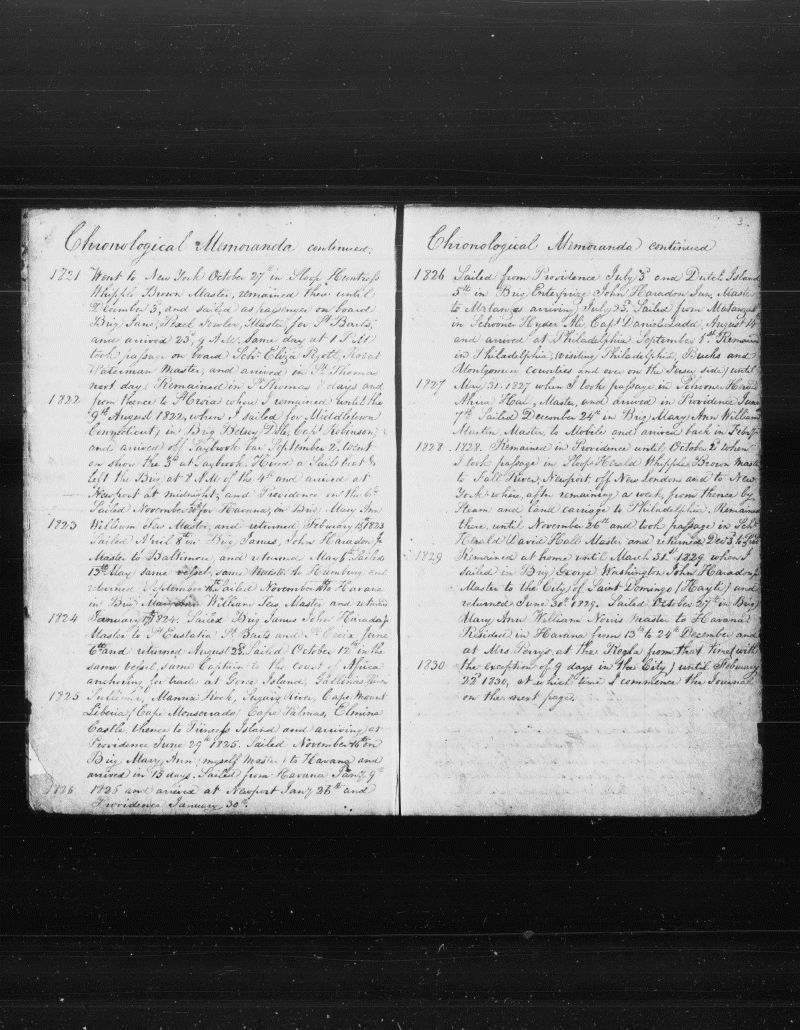 Chronological Memoranda continued.
1821 Went to New York October 27th in Sloop Huntress
Whipple Brown Master, remained there until
December 3, and sailed as passenger on board
Brig Juno, Master for St Barts,
and arrived 23d, 9 A.M. same day at 1 P.M.
took passage on board Schr Eliza
Waterman Master, and arrived in St Thomas
next day. Remained in St Thomas 8 days and
1822 from thence to St Croix where I remained until the
9th August 1822, when I sailed for Middletown
Connecticut, in Brig Betsey Capt Robinson,
and arrived off Saybrook bar September 2d went
on shore the 3d at Saybrook. Hired a Sailboat &
left the Brig at 8 A.M of the 4th and arrived at
Newport at midnight, and Providence on the
Sailed November for Havana, in Brig Mary Ann
1823 William Master, and returned February 13th 1823
Sailed April 8th in Brig James, John Haradon Jr
Master to Baltimore, and returned May Sailed
15th May same vessel, same Master to Hamburg and
returned September Sailed November to Havana
in Brig William Master and returned
1824 January 1824. Sailed Brig James John Haradon Jr
Master to St Eustatia St Barts and St Croix, June
6th and returned August 28. Sailed October 12th in the
same vessel, same Captain to the coast of Africa
anchoring for trade at Goree Island, Gallinas River
1825 Manna Rock, Sugary River, Cape Mount
Liberia (Cape Monserado) Cape Palmas, Elmina
Castle, thence to Princes Island and arriving at
Providence June 29th 1825. Sailed November 6th in
Brig Mary Ann, myself Master, to Havana and
arrived in 15 days. Sailed from Havana Jany 9th
1826 1825 and arrived at Newport Jany 26th and
Providence January 30th.
3
Chronological Memoranda continued
1826 Sailed from Providence July 3d and Dutch Island
5th in Brig Enterprize John Haradon Jun, Master
to Matanzas arriving July 23. Sailed from Matanzas
in Schooner Hyder Ali, Capt Daniel Ladd, August 14th
and arrived at Philadelphia September 1st. Remained
in Philadelphia, (visiting Philadelphia, Bucks and
Montgomery counties and over on the Jersey side) until
1827 May 31, 1827 when I took passage in Schooner
Master, and arrived in Providence June
7th. Sailed December 24th in Brig Mary Ann William
Martin, Master, to Mobile and arrived back in
1828 1828. Remained in Providence until October 2d when
I took passage in Sloop Herald Whipple Brown Master
to Fall River, Newport off New London and to New
York where, after remaining a week, from thence by
Steam and land carriage to Philadelphia. Remained
there, until November 26th and took passage in Schr
Herald David Hall Master and returned Dec 3 to
1829 Remained at home until March 31st 1829 when I
sailed in Brig George Washington John Haradon Jr
Master to the City of Saint Domingo (Hayti) and
returned June 30th 1829. Sailed October 27th in Brig
Mary Ann William Master to Havana
Resided in Havana from 13th to 24th December and
at Mrs Perrys at the Regla from that time (with
1830 the exception of 9 days in the City) until February
22d 1830, at which time I commence the Journal
on the next page.